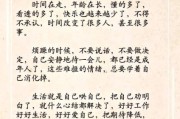 时间在走，年龄在长，懂的多了，
看透的多了，快乐也越来越少了，不得不
承认，时间改变了很多人、甚至很多
事。
烦躁的时候，不要说话，不要做决
定，自己安静地待一会儿，都已经是成
年人了，这些难捱的情绪，总要学着自
己消化掉。
生活就是自己哄自己，把自己劝明
白了，就什么心结都解决了，好好工作
好好生活，好好爱自己，把期待降低，